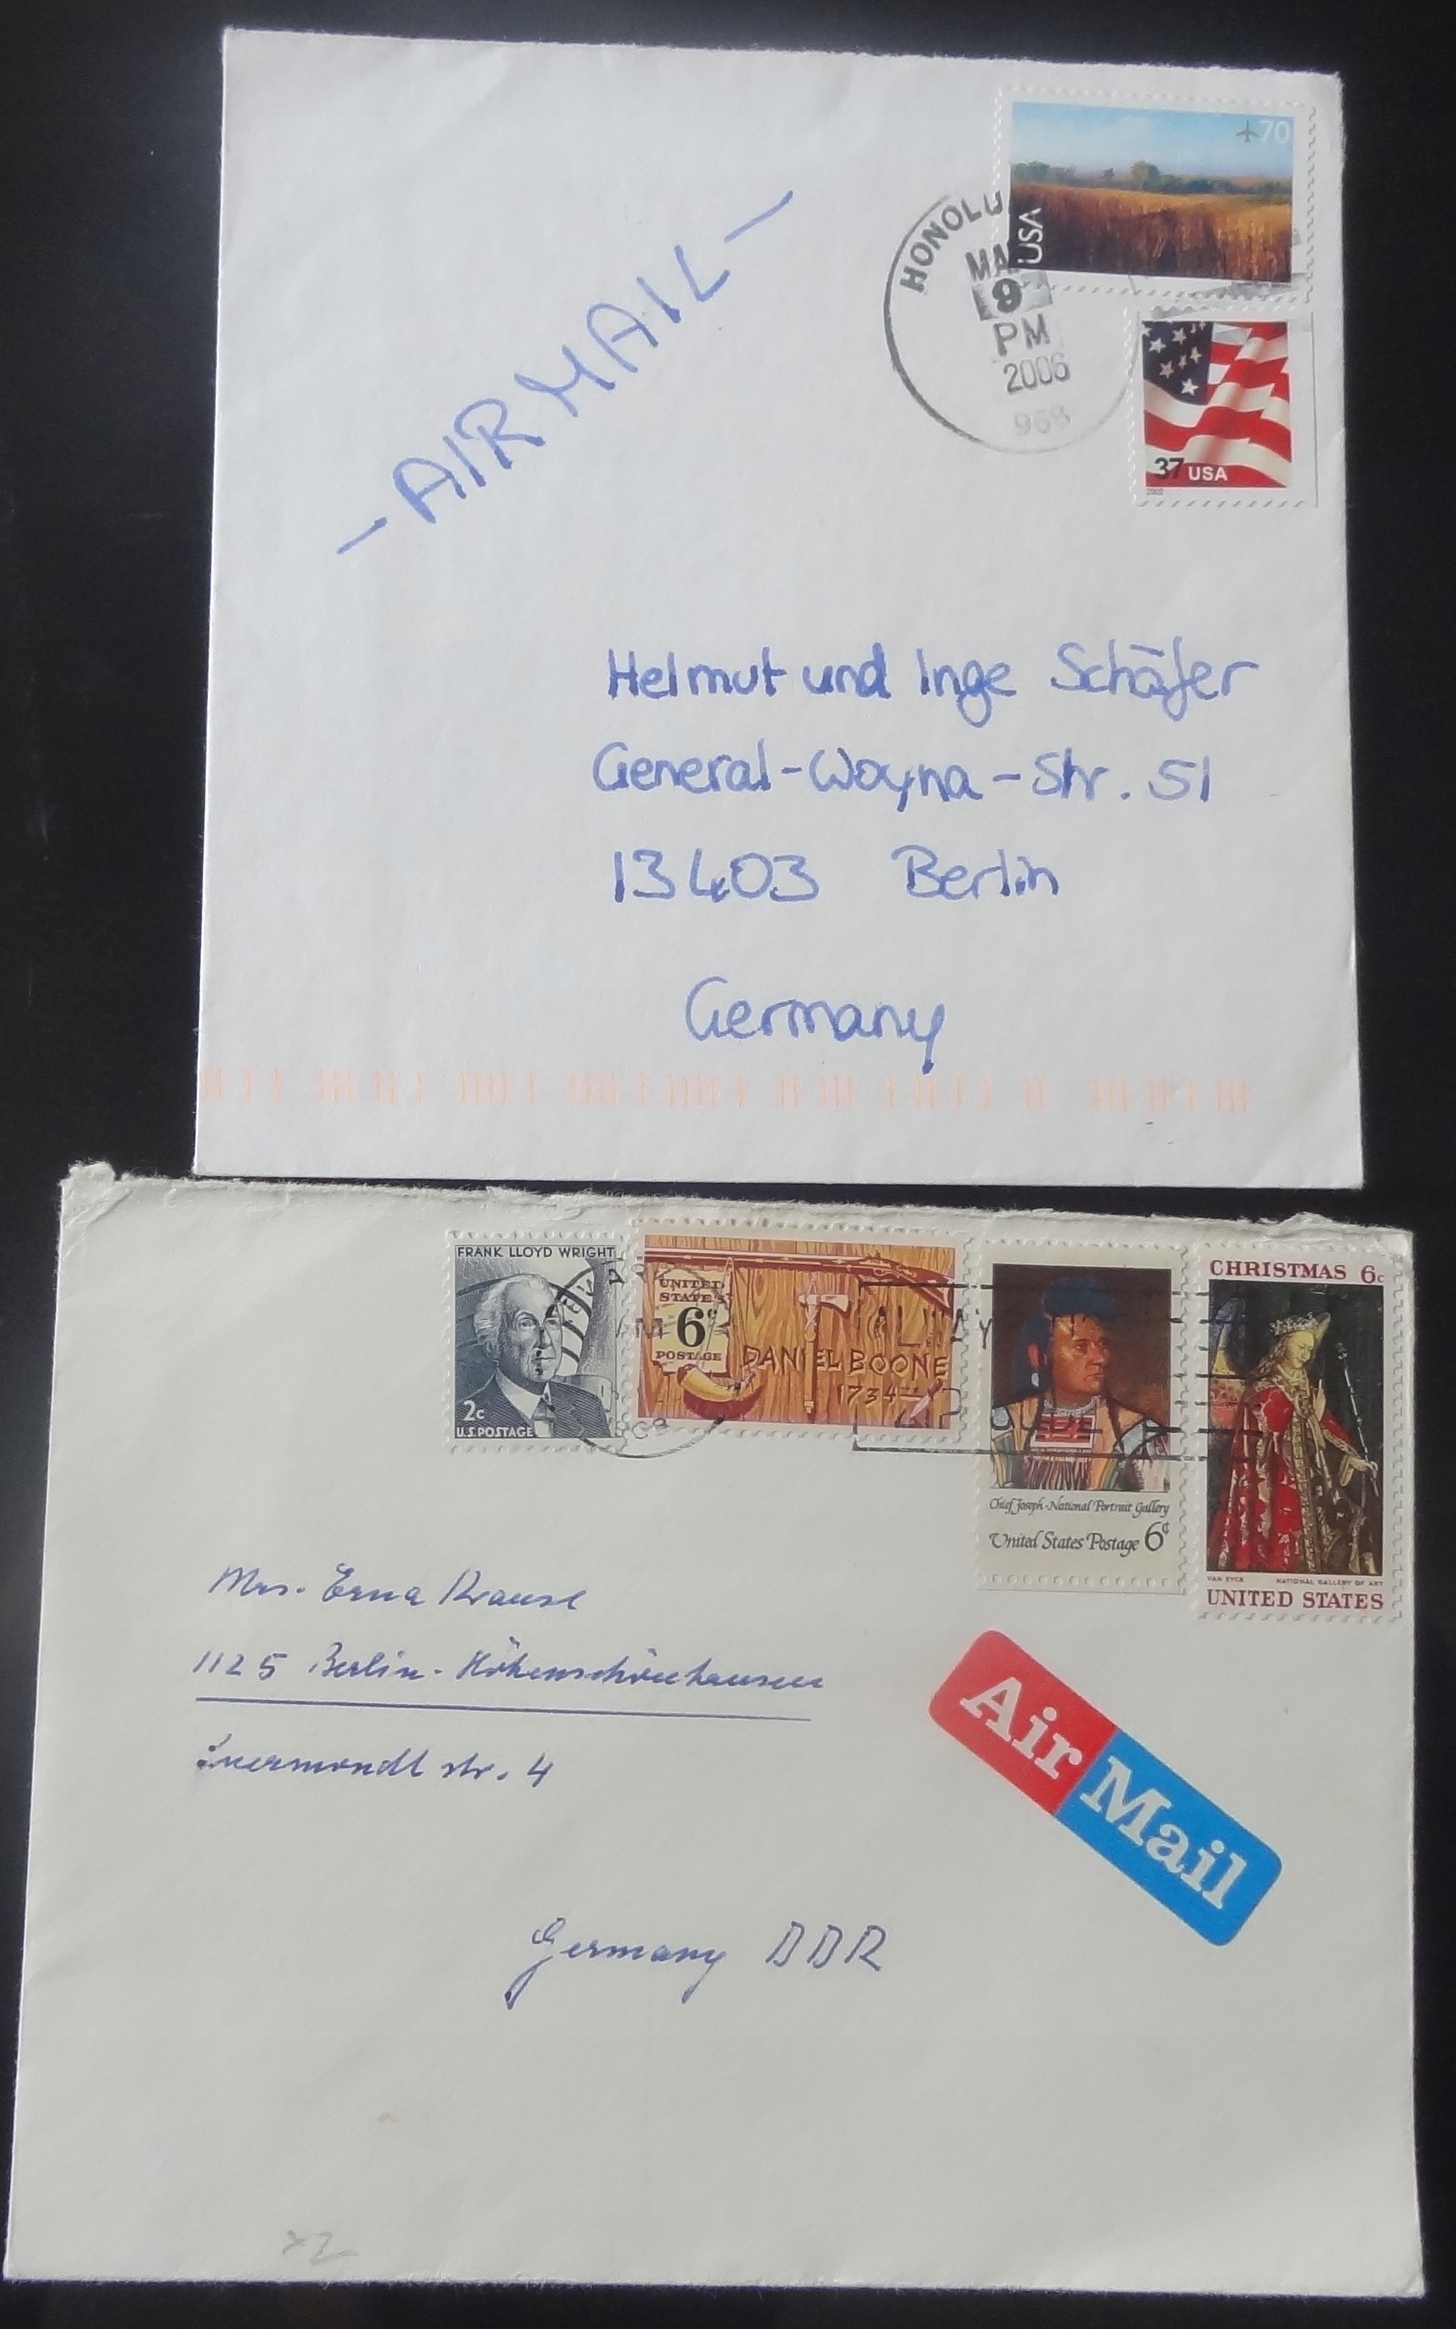 70
USA
HONOLU
MA
9
PM
2006
968
37 USA
2002
- AIRMAIL -
Helmut und Inge Schäfer
General-Woyna-Str. 51
13403 Berlin
Germany
FRANK LLOYD WRIGHT
2c
U.S. POSTAGE
UNITED
STATES
6¢
POSTAGE
DANIEL BOONE
1734
Chief Joseph · National Portrait Gallery
United States Postage 6¢
CHRISTMAS 6c
VAN EYCK NATIONAL GALLERY OF ART
UNITED STATES
Mrs. Erna Krause
1125 Berlin-Höhenschönhausen
str. 4
Germany DDR
Air Mail